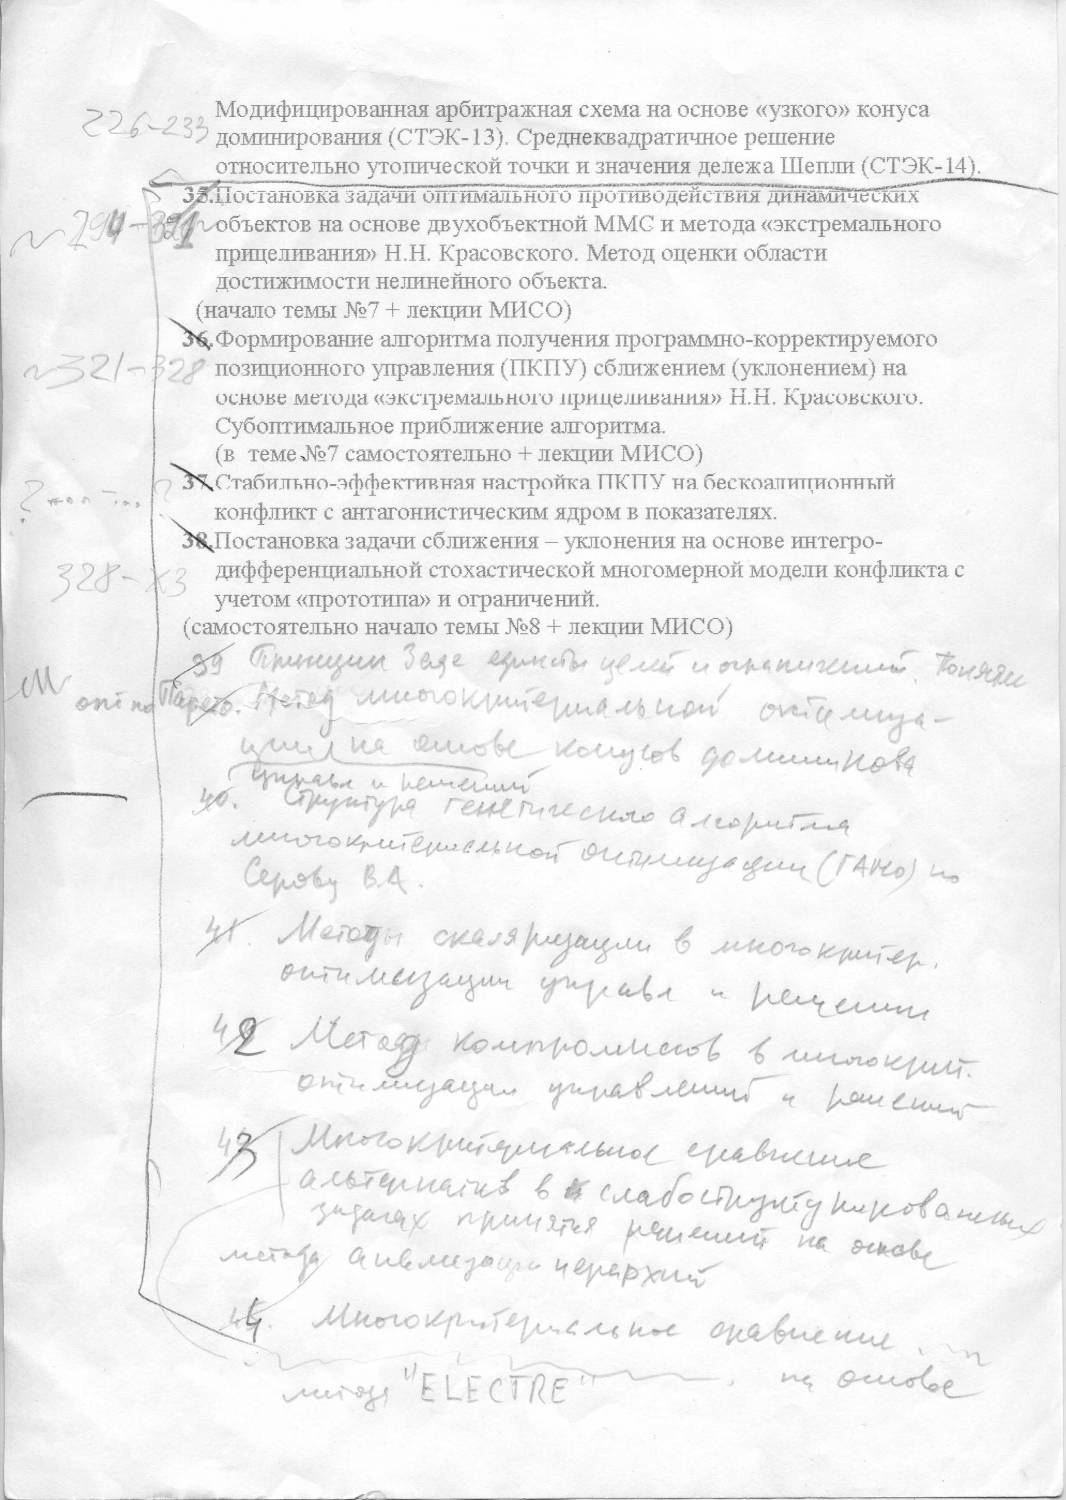 Модифицированная арбитражная схема на основе «узкого» конуса
226-233 доминирования (СТЭК-13). Среднеквадратичное решение
относительно утопической точки и значения дележа Шепли (СТЭК-14).
35.Постановка задачи оптимального противодействия динамических
~294-321 объектов на основе двухобъектной ММС и метода «экстремального
прицеливания» Н.Н. Красовского. Метод оценки области
достижимости нелинейного объекта.
(начало темы №7 + лекции МИСО)
36.Формирование алгоритма получения программно-корректируемого
~321-328 позиционного управления (ПКПУ) сближением (уклонением) на
основе метода «экстремального прицеливания» Н.Н. Красовского.
Субоптимальное приближение алгоритма.
(в теме №7 самостоятельно + лекции МИСО)
37.Стабильно-эффективная настройка ПКПУ на бескоалиционный
конфликт с антагонистическим ядром в показателях.
38.Постановка задачи сближения – уклонения на основе интегро-
328-хз дифференциальной стохастической многомерной модели конфликта с
учетом «прототипа» и ограничений.
(самостоятельно начало темы №8 + лекции МИСО)
39 Принцип Заде единства целей и ограничений. Понятие
опт по Парето. Метод многокритериальной оптимиза-
ции на основе конусов доминирова
управл и решений
40. Структура генетического алгоритма
многокритериальной оптимизации (ГАМО) по
Серову В.А.
41. Методы скаляризации в многокритер.
оптимизации управл и решении
42 Метод компромиссов в многокрит.
оптимизации управлений и решений
43 Многокритериальное сравнение
альтернатив в слабоструктурированных
задачах принятия решений на основе
метода анализа иерархий
44. Многокритериальное сравнение
на основе
метода "ELECTRE"